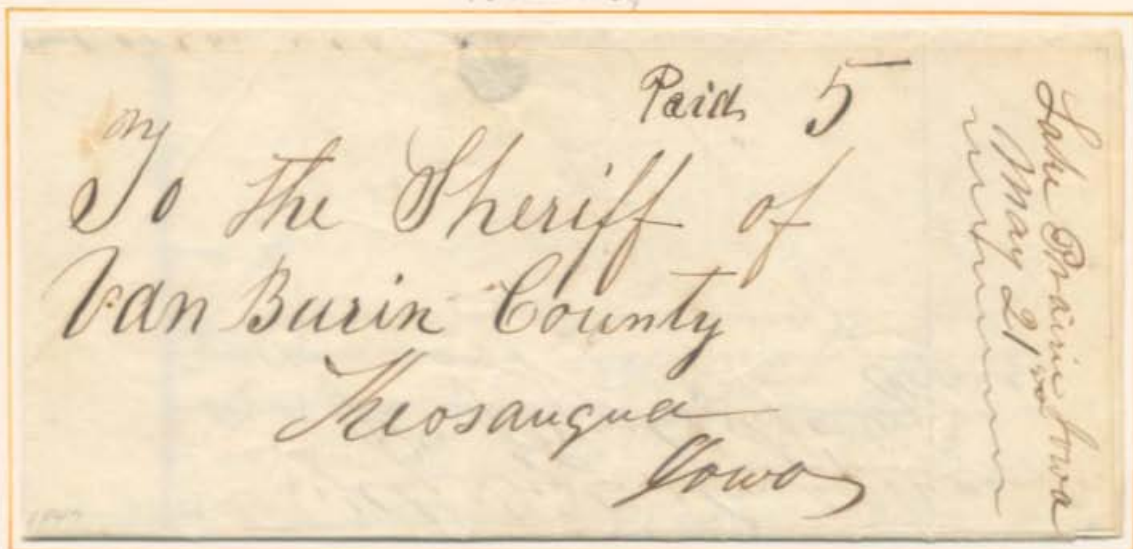 Paid 5
To the Sheriff of
Van Burin County
Keosauqua
Iowa
Lake Prairie Iowa
May 21